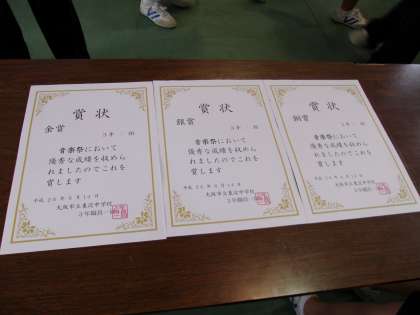 賞状
金賞
3年 組
音楽祭において
優秀な成績を収めら
れましたのでこれを
賞します
平成26年9月14日
大阪市立東淀中学校
3年職員一同
賞状
銀賞
3年 組
音楽祭において
優秀な成績を収めら
れましたのでこれを
賞します
大阪市立東淀中学校
3年職員一同
賞状
銅賞
3年 組
音楽祭において
優秀な成績を収めら
れましたのでこれを
賞します
大阪市立東淀中学校
3年職員一同